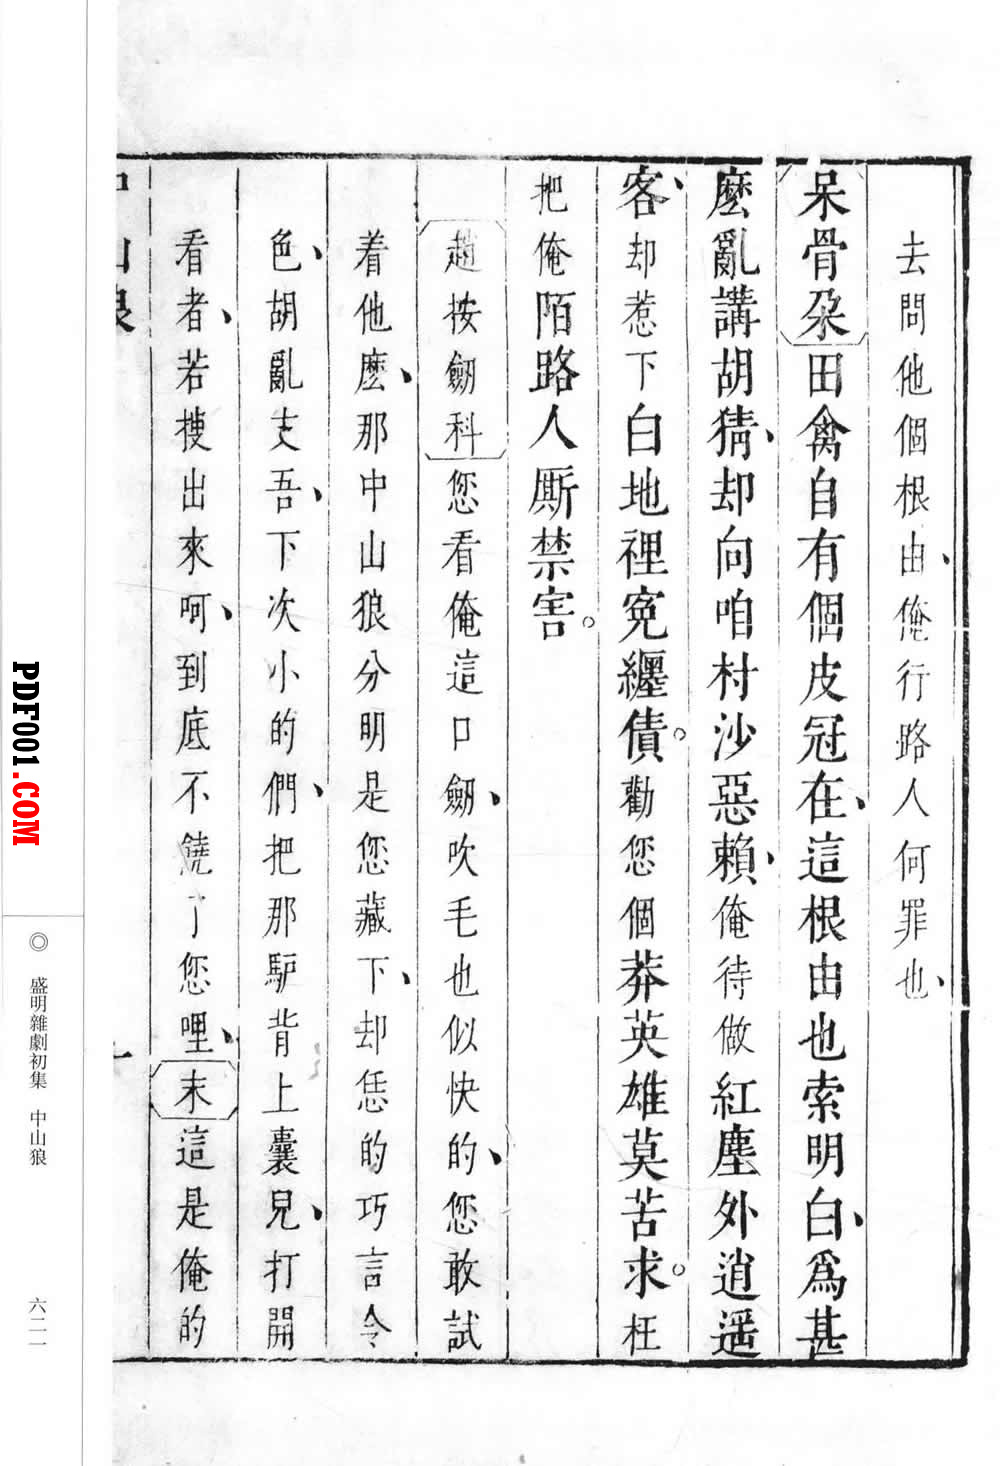 去問他個根由俺行路人何罪也
呆骨朶田禽自有個皮冠在這根由也索明白爲甚
麽亂講胡猜却向咱村沙惡賴俺待做紅塵外逍遥
客却惹下白地裡冤纏債勸您個莽英雄莫苦求枉
把俺陌路人厮禁害
趙按劒科您看俺這口劒吹毛也似快的您敢試
着他麽那中山狼分明是您藏下却恁的巧言令
色胡亂支吾下次小的們把那馿背上囊兒打開
看者若搜出來呵到底不饒了您哩末這是俺的
中山狼
盛明雜劇初集 中山狼
六二一
PDF001.COM